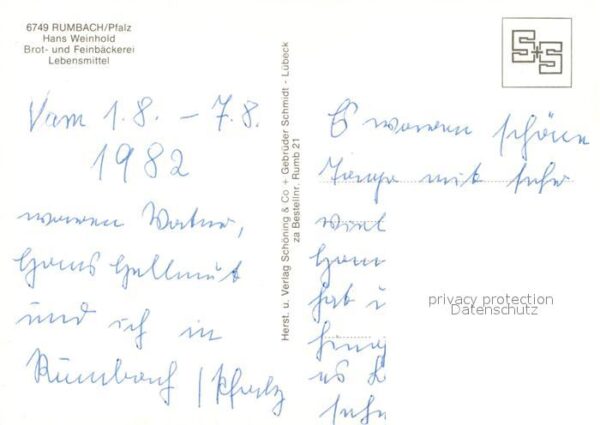 6749 RUMBACH/Pfalz
Hans Weinhold
Brot- und Feinbäckerei
Lebensmittel
S+S
Vom 1.8. – 7.8.
1982
waren
Hans Hellmut
und ich in
Rumbach / Pfalz
Herst. u. Verlag Schöning & Co + Gebrüder Schmidt - Lübeck
za Bestellnr. Rumb 21
Es waren schöne
Tage mit sehr
viel
hat
sehr
privacy protection
Datenschutz